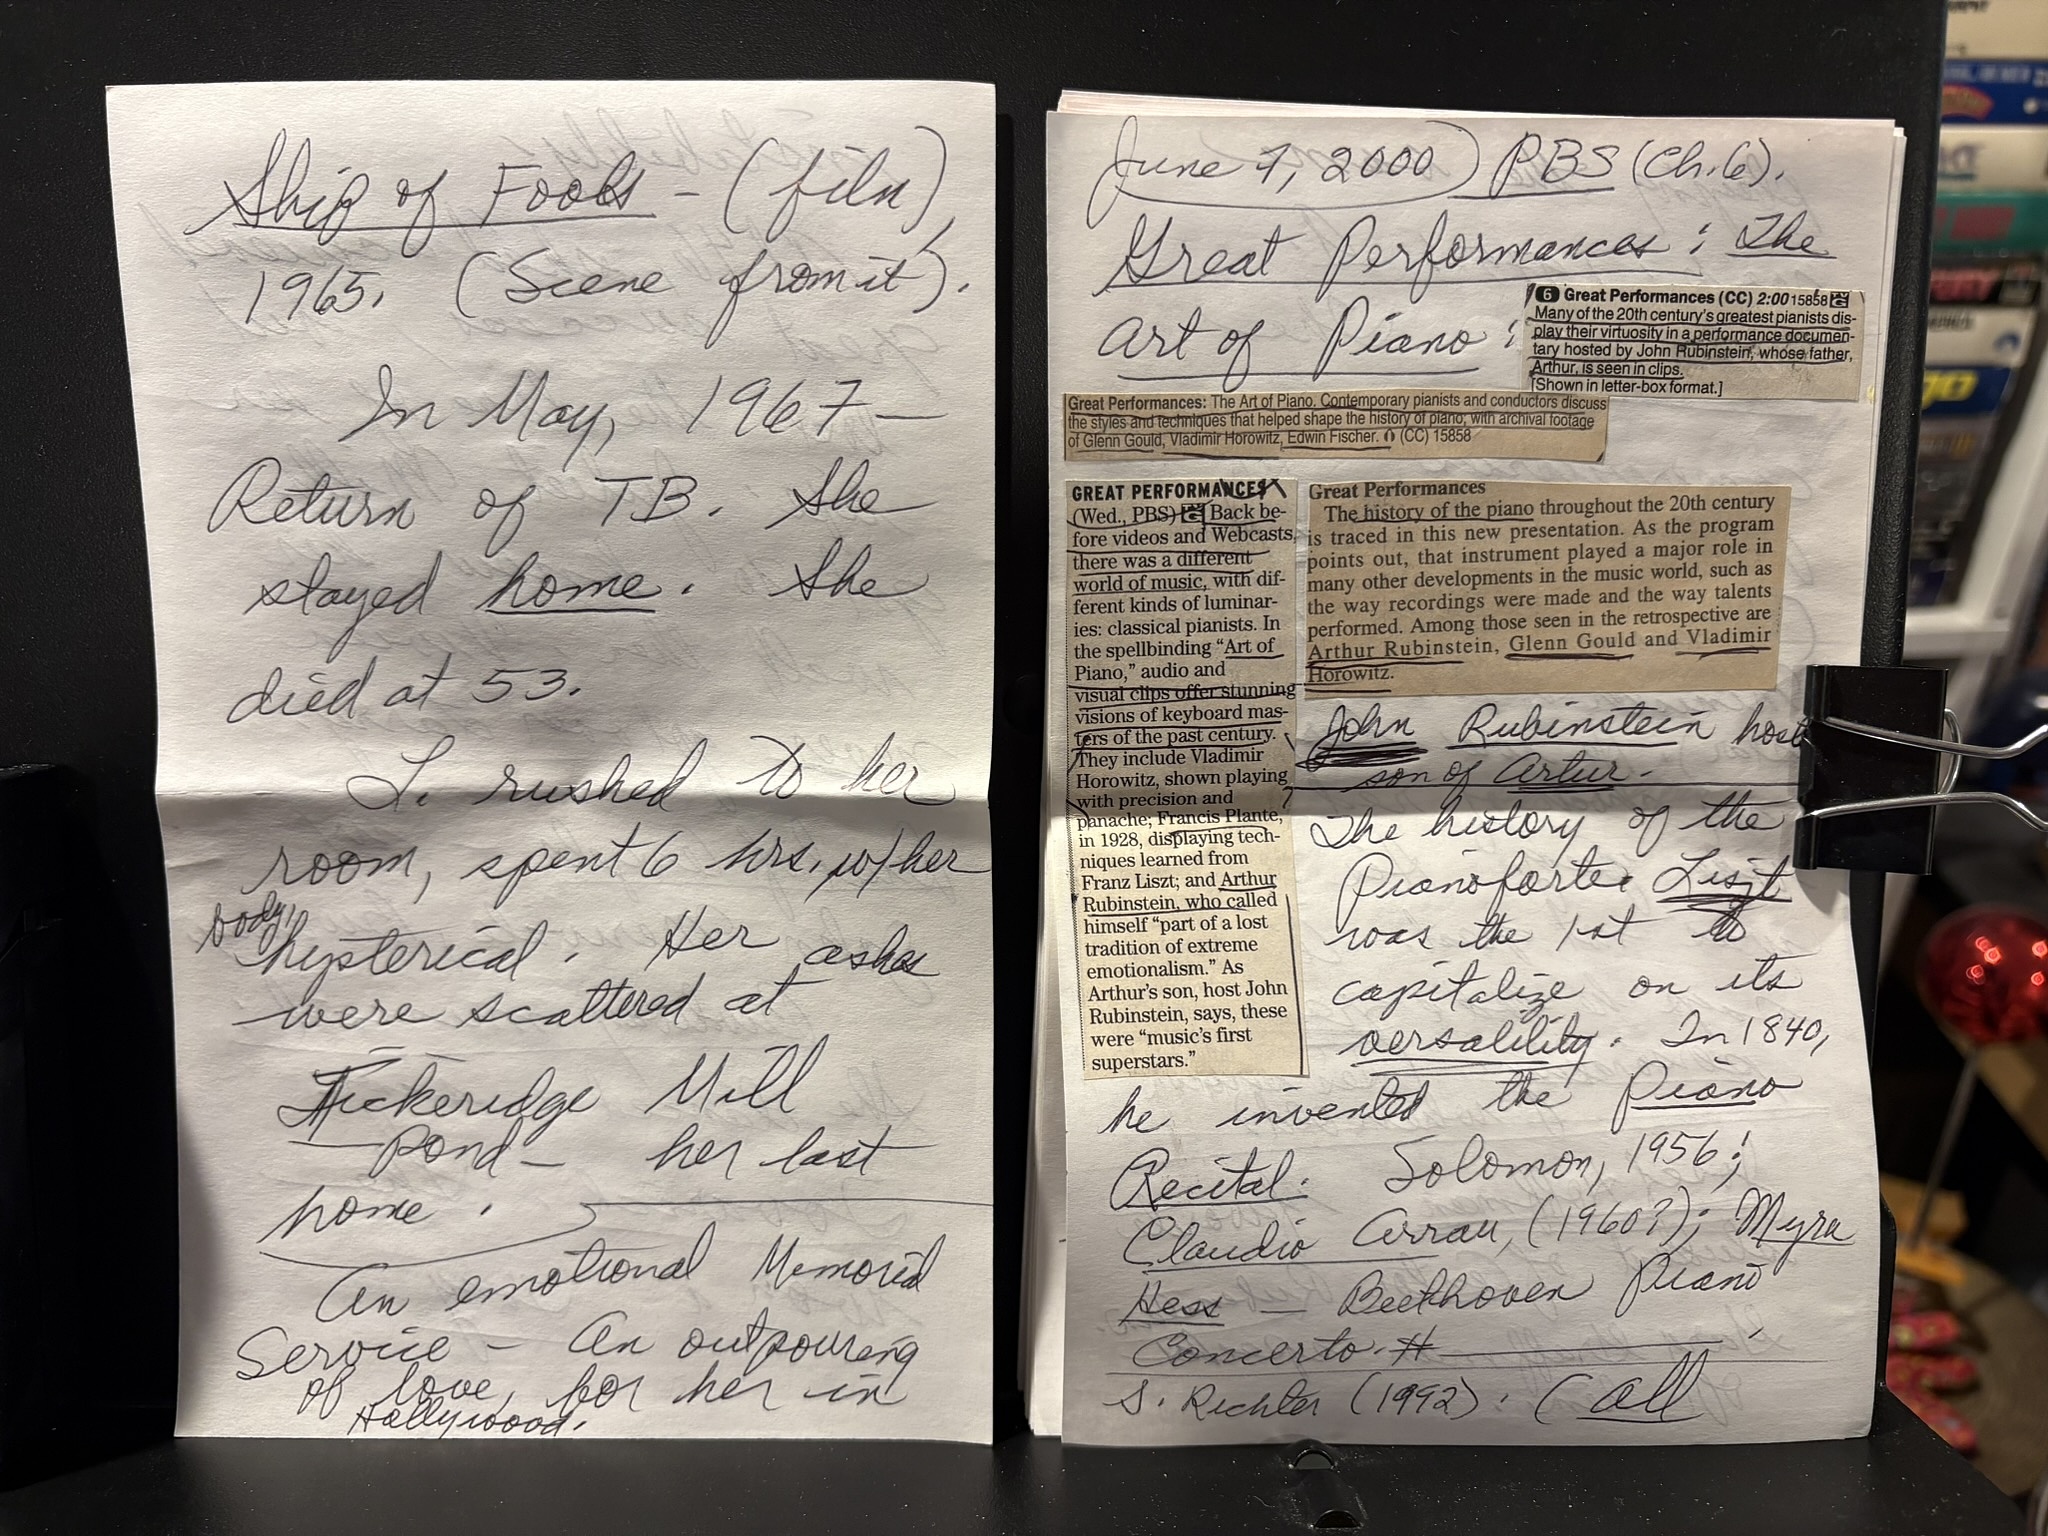 Ship of Fools - (film),
1965. (Scene from it).
In May, 1967 -
Return of TB. She
stayed home. She
died at 53.
L. rushed to her
room, spent 6 hrs. w/ her
body,
hysterical. Her ashes
were scattered at
Tickeridge Mill
Pond - her last
home.
An emotional Memorial
Service - An outpouring
of love, for her in
Hollywood.
June 7, 2000) PBS (Ch. 6).
Great Performances: The
Art of Piano:
6 Great Performances (CC) 2:00 15858
Many of the 20th century's greatest pianists dis-
play their virtuosity in a performance documen-
tary hosted by John Rubinstein, whose father,
Arthur, is seen in clips.
[Shown in letter-box format.]
Great Performances: The Art of Piano. Contemporary pianists and conductors discuss
the styles and techniques that helped shape the history of piano; with archival footage
of Glenn Gould, Vladimir Horowitz, Edwin Fischer. (CC) 15858
GREAT PERFORMANCES
(Wed., PBS) Back be-
fore videos and Webcasts,
there was a different
world of music, with dif-
ferent kinds of luminar-
ies: classical pianists. In
the spellbinding "Art of
Piano," audio and
visual clips offer stunning
visions of keyboard mas-
ters of the past century.
They include Vladimir
Horowitz, shown playing
with precision and
panache; Francis Plante,
in 1928, displaying tech-
niques learned from
Franz Liszt; and Arthur
Rubinstein, who called
himself "part of a lost
tradition of extreme
emotionalism." As
Arthur's son, host John
Rubinstein, says, these
were "music's first
superstars."
Great Performances
The history of the piano throughout the 20th century
is traced in this new presentation. As the program
points out, that instrument played a major role in
many other developments in the music world, such as
the way recordings were made and the way talents
performed. Among those seen in the retrospective are
Arthur Rubinstein, Glenn Gould and Vladimir
Horowitz.
John Rubinstein host
son of Artur.
The history of the
Pianoforte. Liszt
was the 1st to
capitalize on its
versatility. In 1840,
he invented the Piano
Recital. Solomon, 1956;
Claudio Arrau, (1960?); Myra
Hess - Beethoven Piano
Concerto #
S. Richter (1992). (All